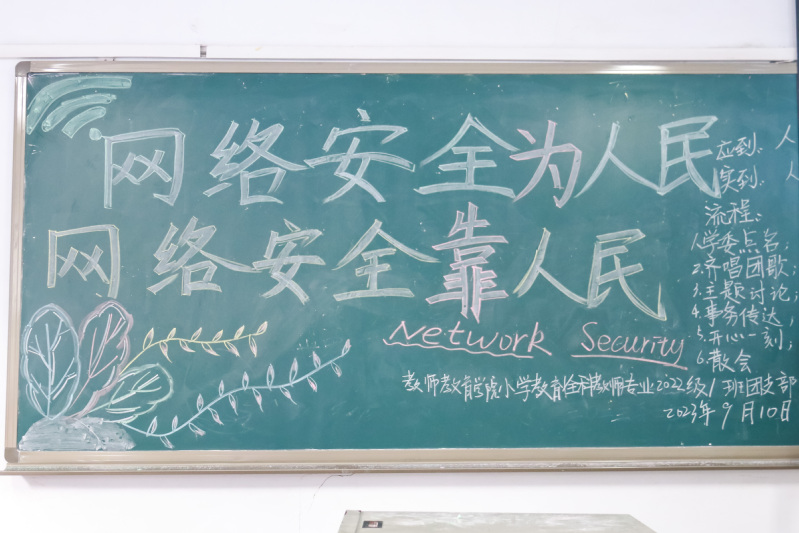 网络安全为人民
网络安全靠人民
Network Security
教师教育学院小学教育全科教师专业2022级1班团支部
2023年9月10日
应到: 人
实到: 人
流程:
1.学委点名;
2.齐唱团歌;
3.主题讨论;
4.事务传达;
5.开心一刻;
6.散会